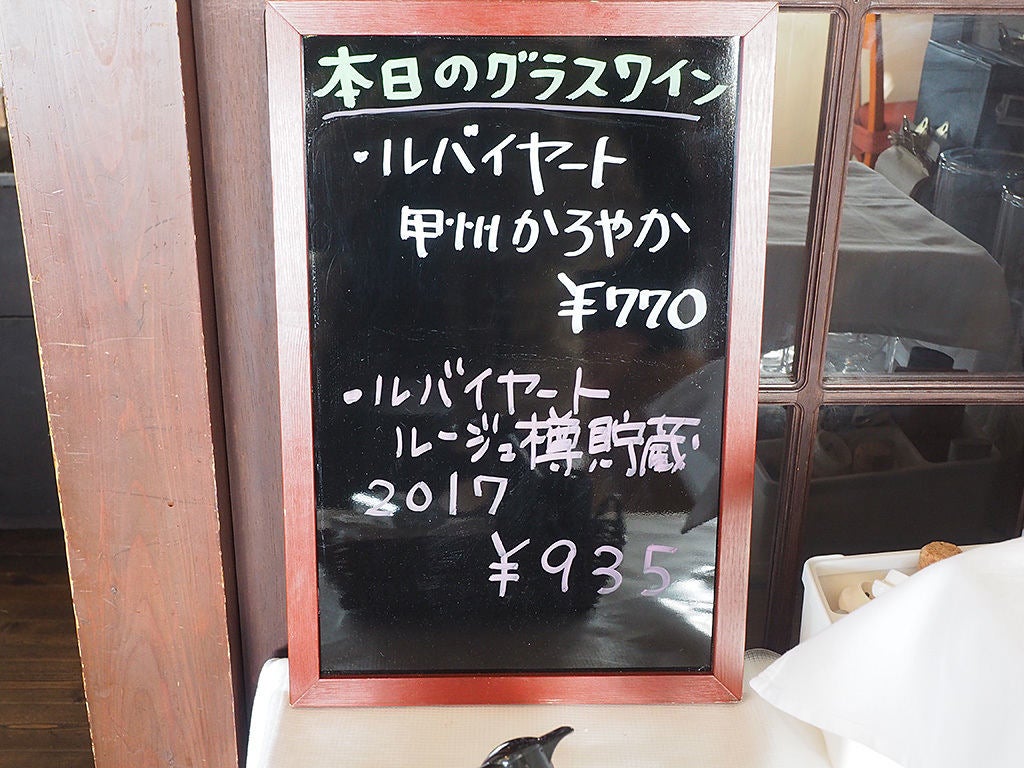 本日のグラスワイン
・ルバイヤート
甲州かろやか
¥770
・ルバイヤート
ルージュ樽貯蔵
2017
¥935